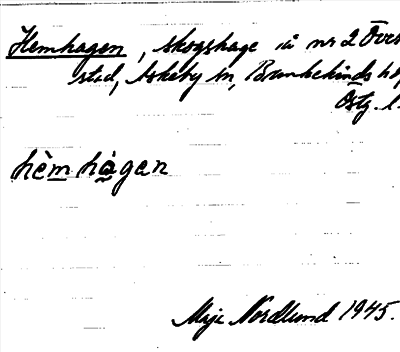 Hemhagen, skogshage i å nr 2 Övers
stad, Askeby sn, Bankekinds h
Östg. l.
hèm hàgan
Maja Nordlund 1945.